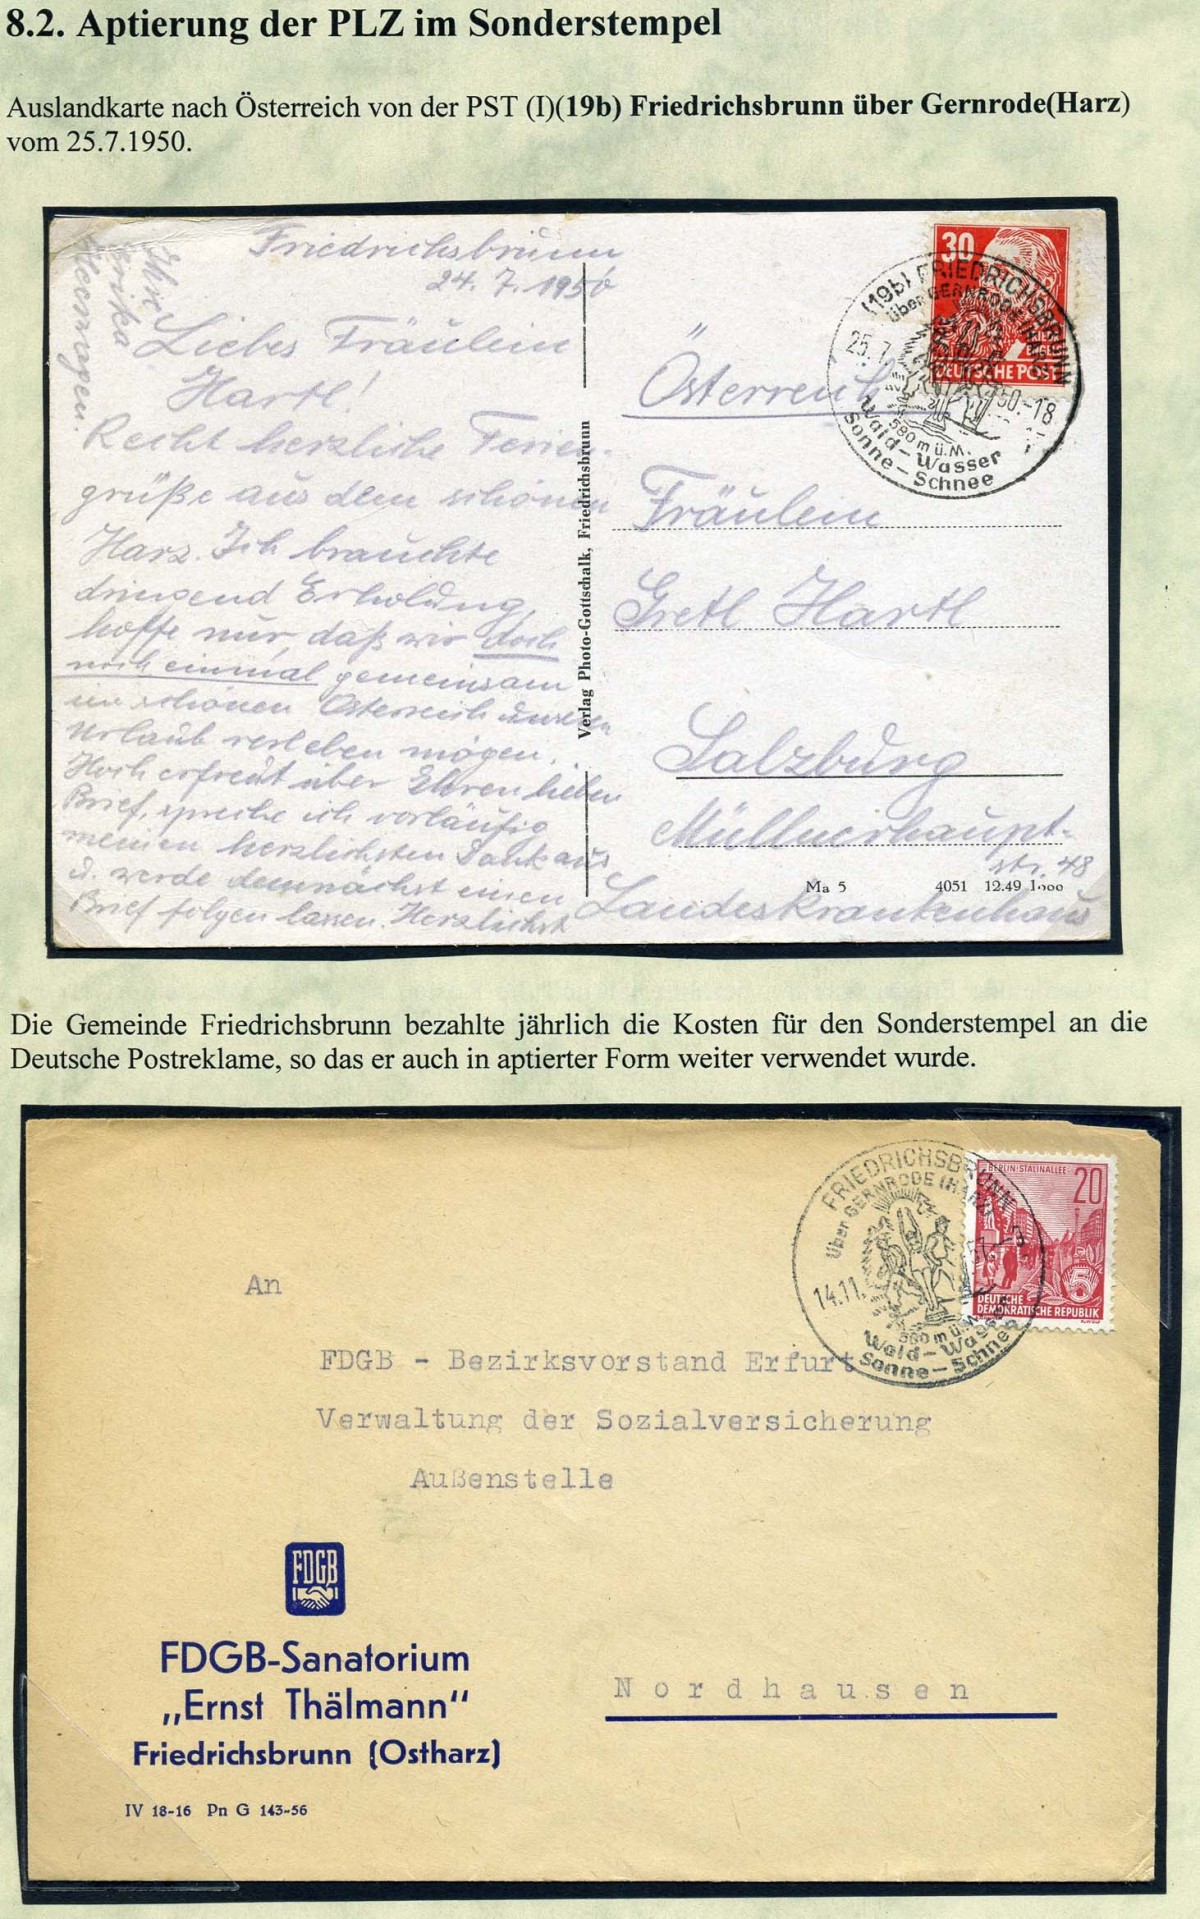 8.2. Aptierung der PLZ im Sonderstempel
Auslandkarte nach Österreich von der PST (I)(19b) Friedrichsbrunn über Gernrode(Harz)
vom 25.7.1950.
Friedrichsbrunn
24. 7. 1950
Liebes Fräulein
Hartl!
Recht herzliche Ferien-
grüße aus dem schönen
Harz. Ich brauchte
dringend Erholung,
hoffe nur, daß wir doch
noch einmal gemeinsam
im schönen Österreich unseren
Urlaub verleben mögen.
Hoch erfreut über Ihren lieben
Brief, spreche ich vorläufig
meinen herzlichsten Dank aus
u. werde demnächst einen
Brief folgen lassen. Herzlichst
Ihre
Erika
Verlag Photo-Gottschalk, Friedrichsbrunn
30
DEUTSCHE POST
(19b) FRIEDRICHSBRUNN
über GERNRODE (HARZ)
25.7. 50.-18
580 m ü.M.
Wald-Wasser
Sonne-Schnee
Österreich
Fräulein
Gretl Hartl
Salzburg
Müllnerhaupt-
str. 48
Landeskrankenhaus
Ma 5 4051 12.49 1000
Die Gemeinde Friedrichsbrunn bezahlte jährlich die Kosten für den Sonderstempel an die
Deutsche Postreklame, so das er auch in aptierter Form weiter verwendet wurde.
FRIEDRICHSBRUNN
über GERNRODE (HARZ)
14.11.
580 m ü.M.
Wald-Wasser
Sonne-Schnee
BERLIN/STALINALLEE
20
5
DEUTSCHE
DEMOKRATISCHE REPUBLIK
An
FDGB - Bezirksvorstand Erfurt
Verwaltung der Sozialversicherung
Außenstelle
FDGB
FDGB-Sanatorium
„Ernst Thälmann"
Friedrichsbrunn (Ostharz)
Nordhausen
IV 18-16 Pn G 143-56